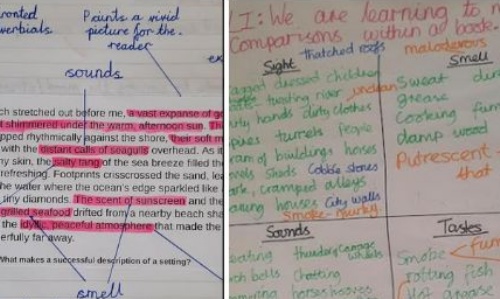 ronted
verbials.
Paints a vivid
picture for the
reader
sounds
ch stretched out before me, a vast expanse of g
t shimmered under the warm, afternoon sun. Th
pped rhythmically against the shore, their soft m
with the distant calls of seagulls overhead. As it
ny skin, the salty tang of the sea breeze filled the
refreshing. Footprints crisscrossed the sand, lea
he water where the ocean's edge sparkled like
tiny diamonds. The scent of sunscreen and the
grilled seafood drifted from a nearby beach sha
the idyllic, peaceful atmosphere that made the
erfully far away.
What makes a successful description of a setting?
smell
I: We are learning to m
Comparisons within a book.
Sight
thatched roofs
dressed children
twisting river
unclean
hands dirty clothes
tunnels people
of buildings horses
Sheds Cobble stones
cramped alleys
houses City walls
Smoke-
malodorous
Smell
Sweat
grease
Cooking
damp wood
Putrescent
that
Sounds
bells Chatting
horses
Tastes
Smoke
rotting fish
grease